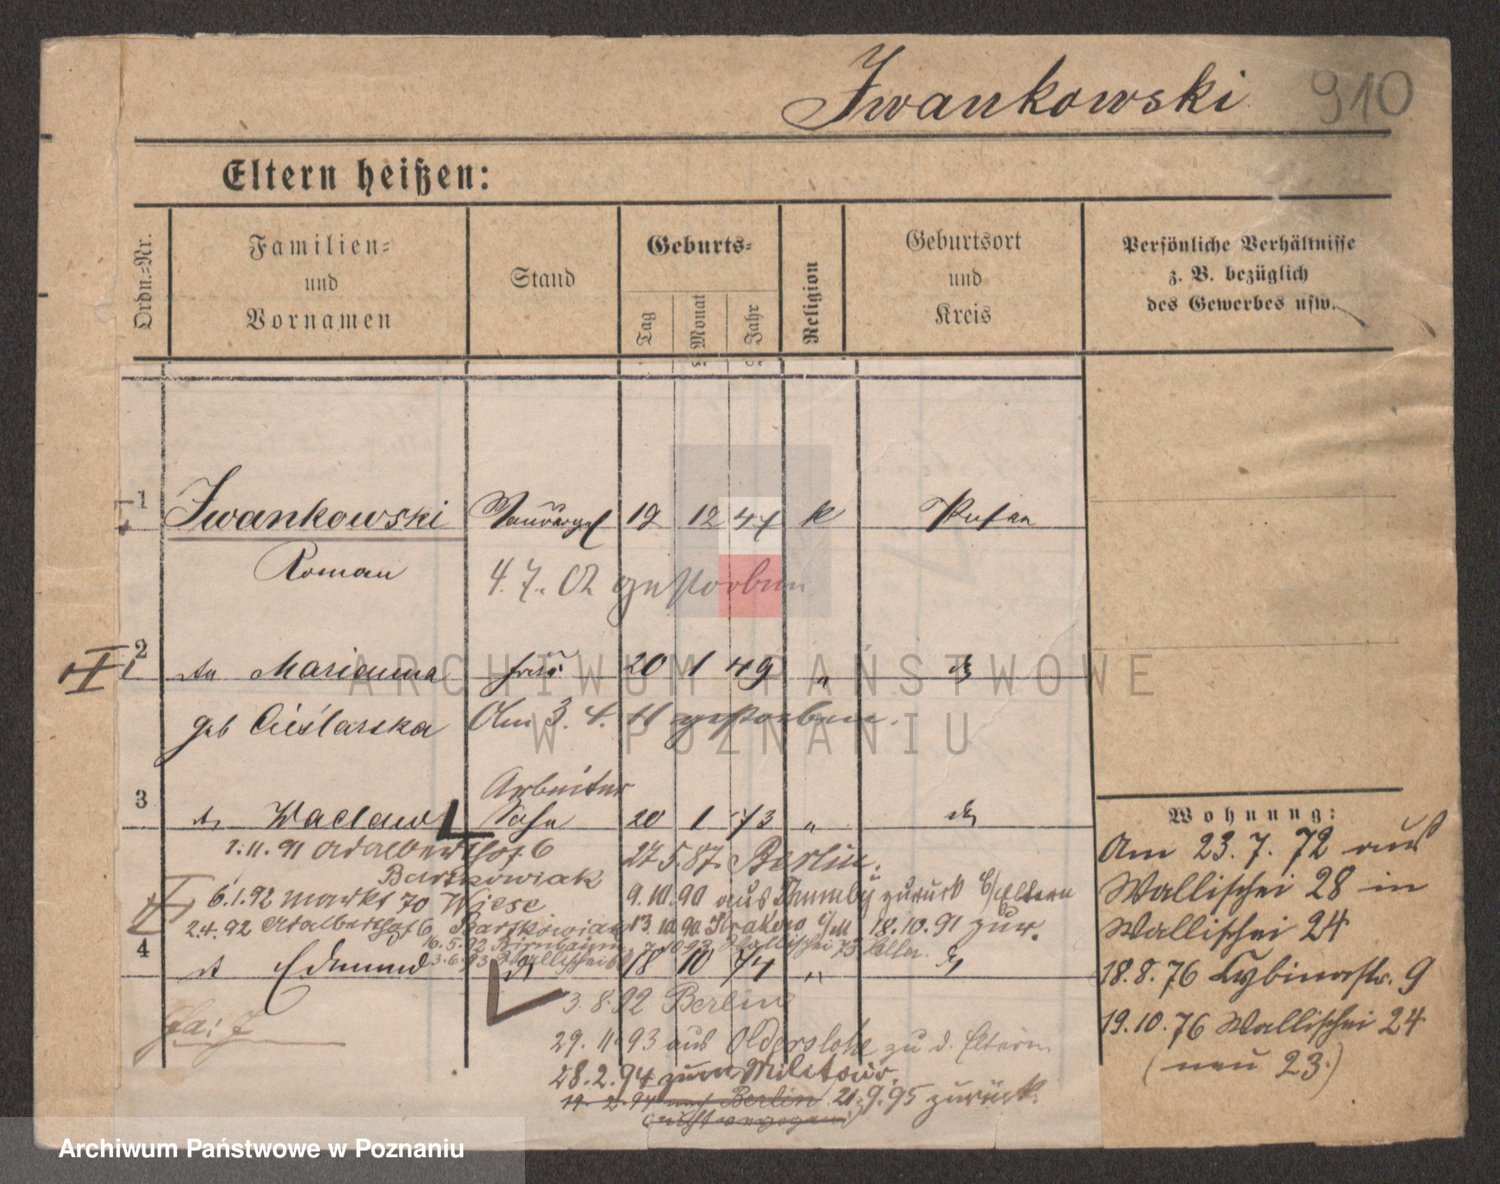 Iwankowski 910
Eltern heißen:
Ordn.=Nr.
Familien=
und
Vornamen
Stand
Geburts=
Tag
Monat
Jahr
Religion
Geburtsort
und
Kreis
Persönliche Verhältnisse
z. B. bezüglich
des Gewerbes usw.
1 Iwankowski 19 12 47 k Posen
Roman 4. 7. 02 gestorben
2 Marianna frau 20 1 49 "
geb Cieślarska Am 3. 4. 11 gestorben.
Arbeiter
3 Waclaw Sohn 20 1 73 "
1.11.91 Adalbertstr 6 27 5.87. Berlin.
Bartkowiak
6.1.92 Markt 70 Wiese 9.10.90 aus zurück b/Eltern
24.92 Adalbertstr 6 Bartkowiak 13.10.90 Krakow 18.10.91 zur.
16.5.92 Birnbaum
4 Edmund 18 10 74 "
3.8.92 Berlin
29.11.93 aus Olderslohe zu d. Eltern
28.2.94 zum Militair.
11.2.94 nach Berlin 21.9.95 zurück.
Wohnung:
Am 23. 7. 72 aus
Wallischei 28 in
Wallischei 24
18.8.76 Cybinastr. 9
19.10.76 Wallischei 24
(neu 23.)
ARCHIWUM PAŃSTWOWE
W POZNANIU
Archiwum Państwowe w Poznaniu